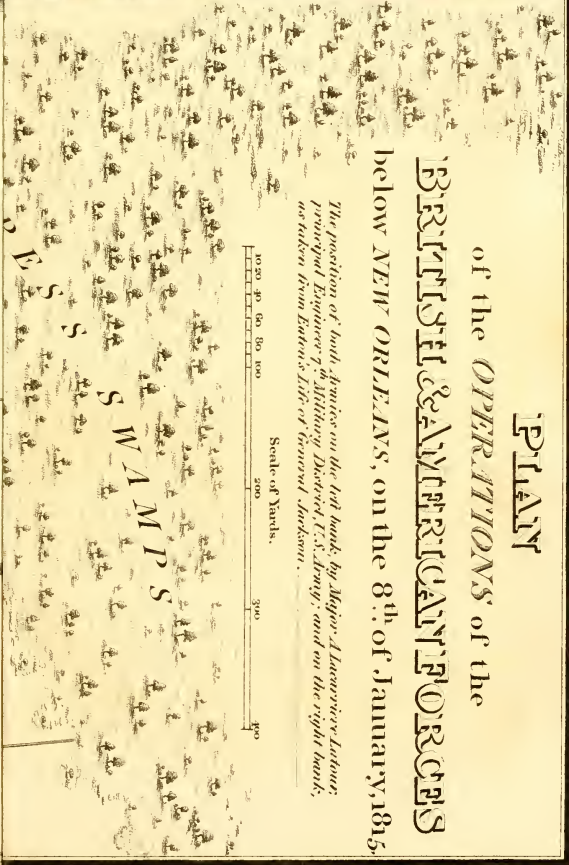 PLAN
of the OPERATIONS of the
BRITISH & AMERICAN FORCES
below NEW ORLEANS, on the 8th of January, 1815,
The position of both Armies on the left bank, by Major A Lacarriere Latour;
principal Engineer 7th Military District, U.S. Army; and on the right bank;
as taken from Eaton's Life of General Jackson.
Scale of Yards.
10 20 40 60 80 100 200 300 400
ESS SWAMPS